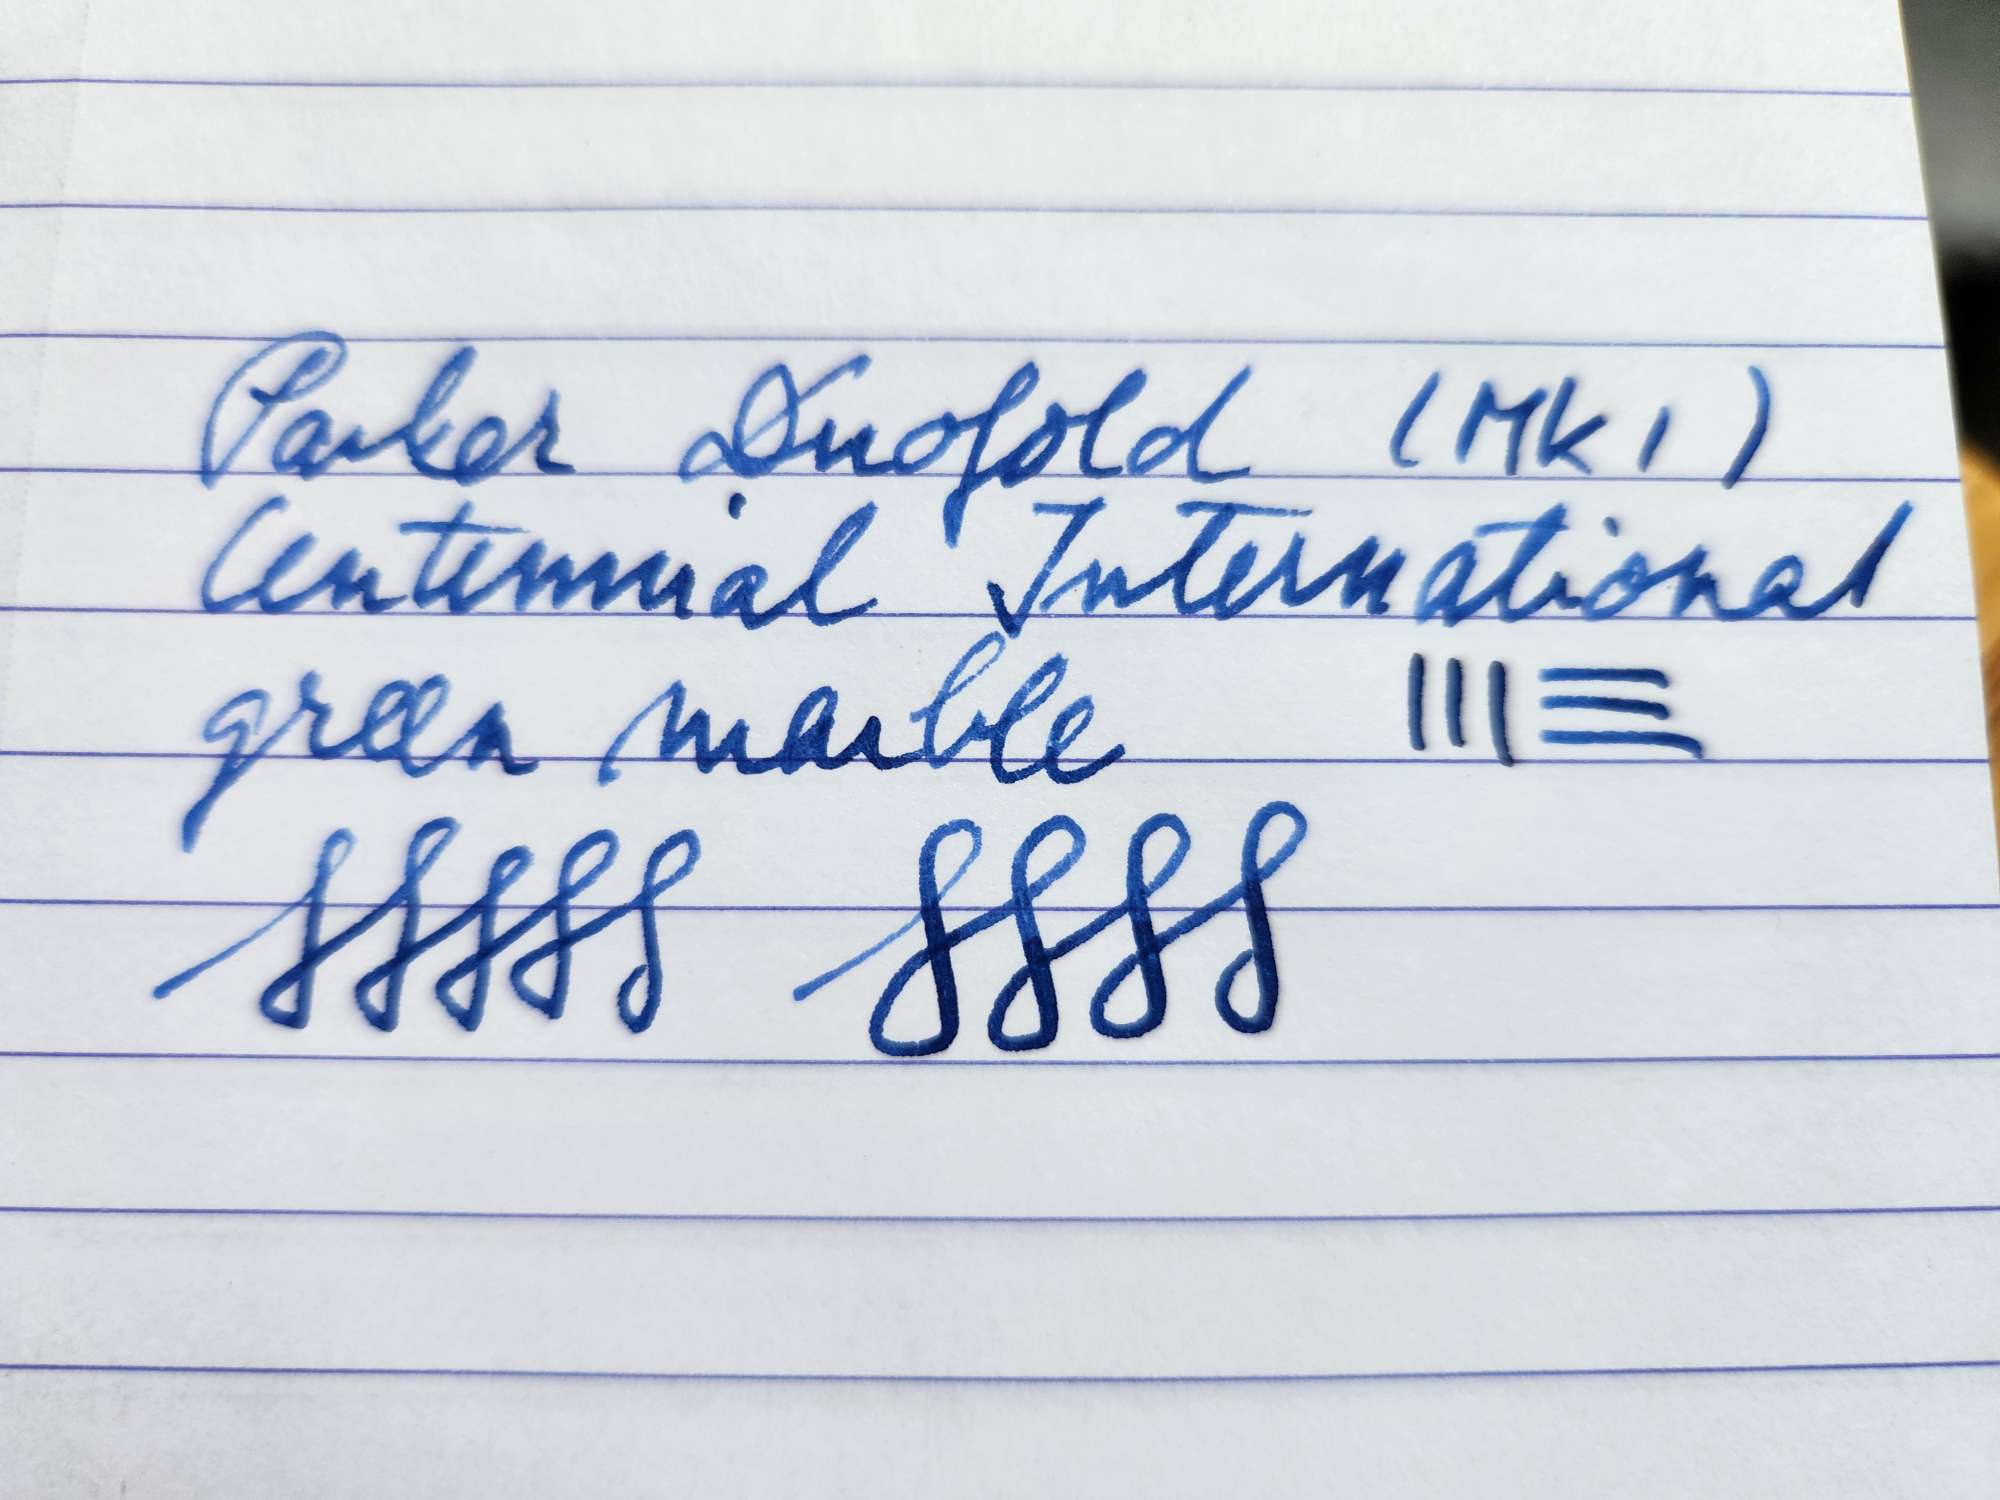 Parker Duofold (MK I)
Centennial International
green marble